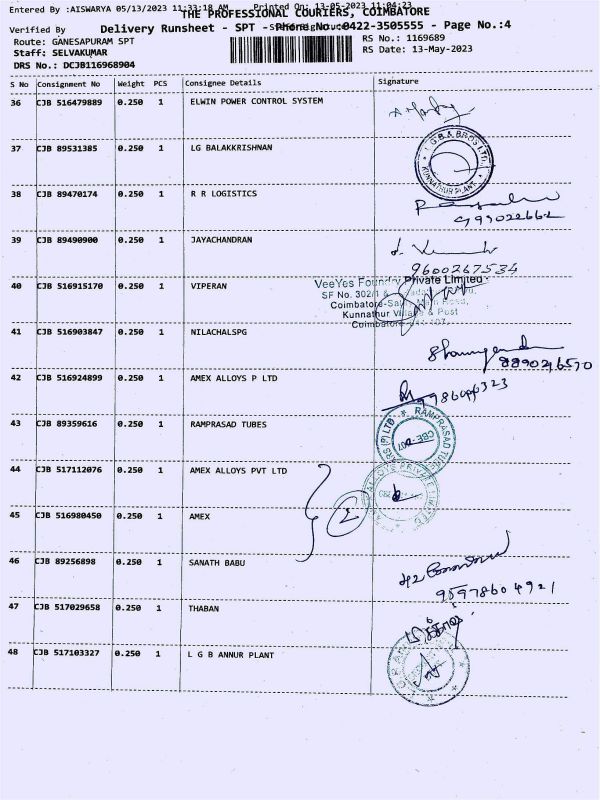 Entered By :AISWARYA 05/13/2023 11:33:18 AM Printed On: 13-05-2023 11:04:23
THE PROFESSIONAL COURIERS, COIMBATORE
Verified By
Delivery Runsheet - SPT - Phone No.:0422-3505555 - Page No.:4
Route: GANESAPURAM SPT
RS No.: 1169689
Staff: SELVAKUMAR
RS Date: 13-May-2023
DRS No.: DCJB116968904
S No Consignment No Weight PCS Consignee Details Signature
36 CJB 516479889 0.250 1 ELWIN POWER CONTROL SYSTEM
37 CJB 89531385 0.250 1 LG BALAKKRISHNAN
L.G.B.& BROS LTD.
KUNNATHUR PLANT
38 CJB 89470174 0.250 1 R R LOGISTICS
39 CJB 89490900 0.250 1 JAYACHANDRAN
9600267534
40 CJB 516915170 0.250 1 VIPERAN
VeeYes Foundry Private Limited
SF No. 302/1 &
Coimbatore-Sathy Main Road,
Kunnathur Village & Post
Coimbatore-641 107.
41 CJB 516903847 0.250 1 NILACHALSPG
8890246570
42 CJB 516924899 0.250 1 AMEX ALLOYS P LTD
43 CJB 89359616 0.250 1 RAMPRASAD TUBES
44 CJB 517112076 0.250 1 AMEX ALLOYS PVT LTD
45 CJB 516980450 0.250 1 AMEX
46 CJB 89256898 0.250 1 SANATH BABU
9597860 4921
47 CJB 517029658 0.250 1 THABAN
48 CJB 517103327 0.250 1 L G B ANNUR PLANT